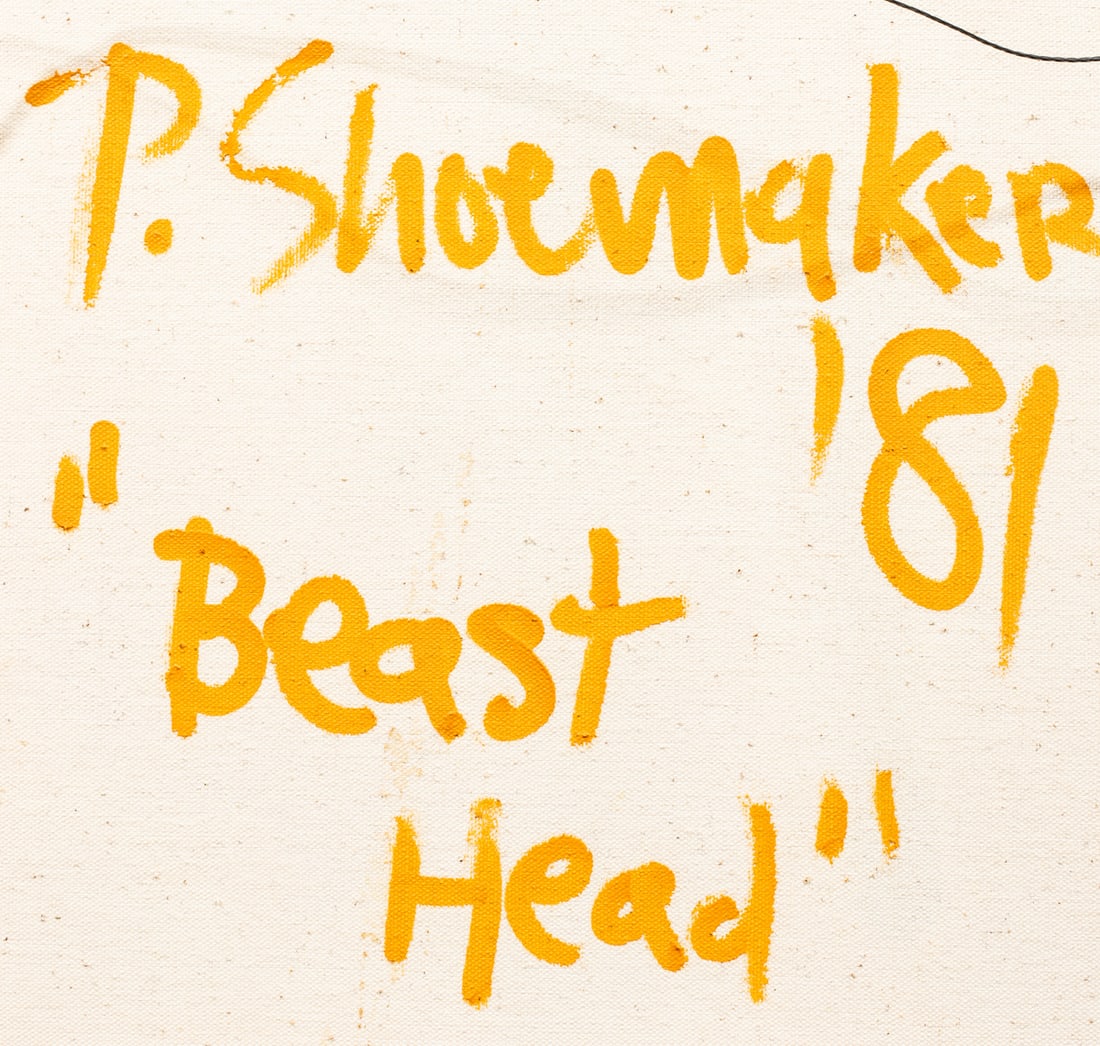 P. Shoemaker
'81
"Beast
Head"